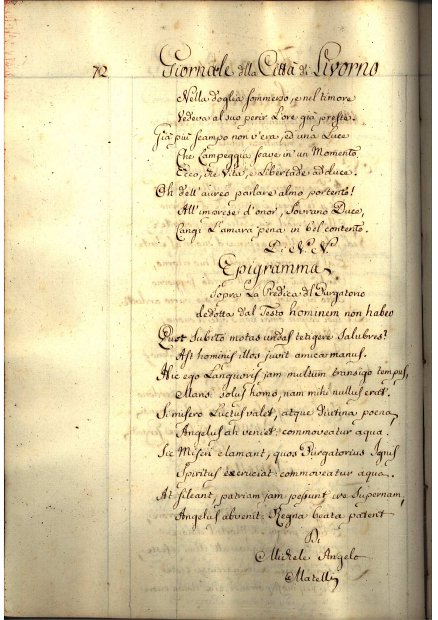 702 Giornale della Città di Livorno
Nella doglia sommerso, e nel timore
Vedeva al suo perir l'ore già preste.
Già più scampo non v'era, ed una Luce
Che Campeggia soave in un Momento
Ecco, che Vita, e Libertade adduce.
Oh dell'aureo parlare almo portento!
All'imprese d'onor, Sovrano Duce,
Cangi L'amara pena in bel contento.
Di N. N.
Epigramma
Sopra La Predica del Purgatorio
dedotta dal Testo hominem non habeo
Quot Subito motas undas tetigere Salubres?
Ast hominis illos juvit amica manus.
Hic ego Languoris jam multum transigo tempus,
Mans. solus homo, nam mihi nullus erat.
Si misero Luctus valet, atque diutina poena,
Angelus ah veniet: commoveatur aqua,
Sic Miseri clamant, quos Purgatorius Ignis
Spiritus excruciat: commoveatur aqua.
At sileant, patriam jam possunt ire Supernam,
Angelus advenit: Regna beata patent
Di
Michele Angelo
Matelli